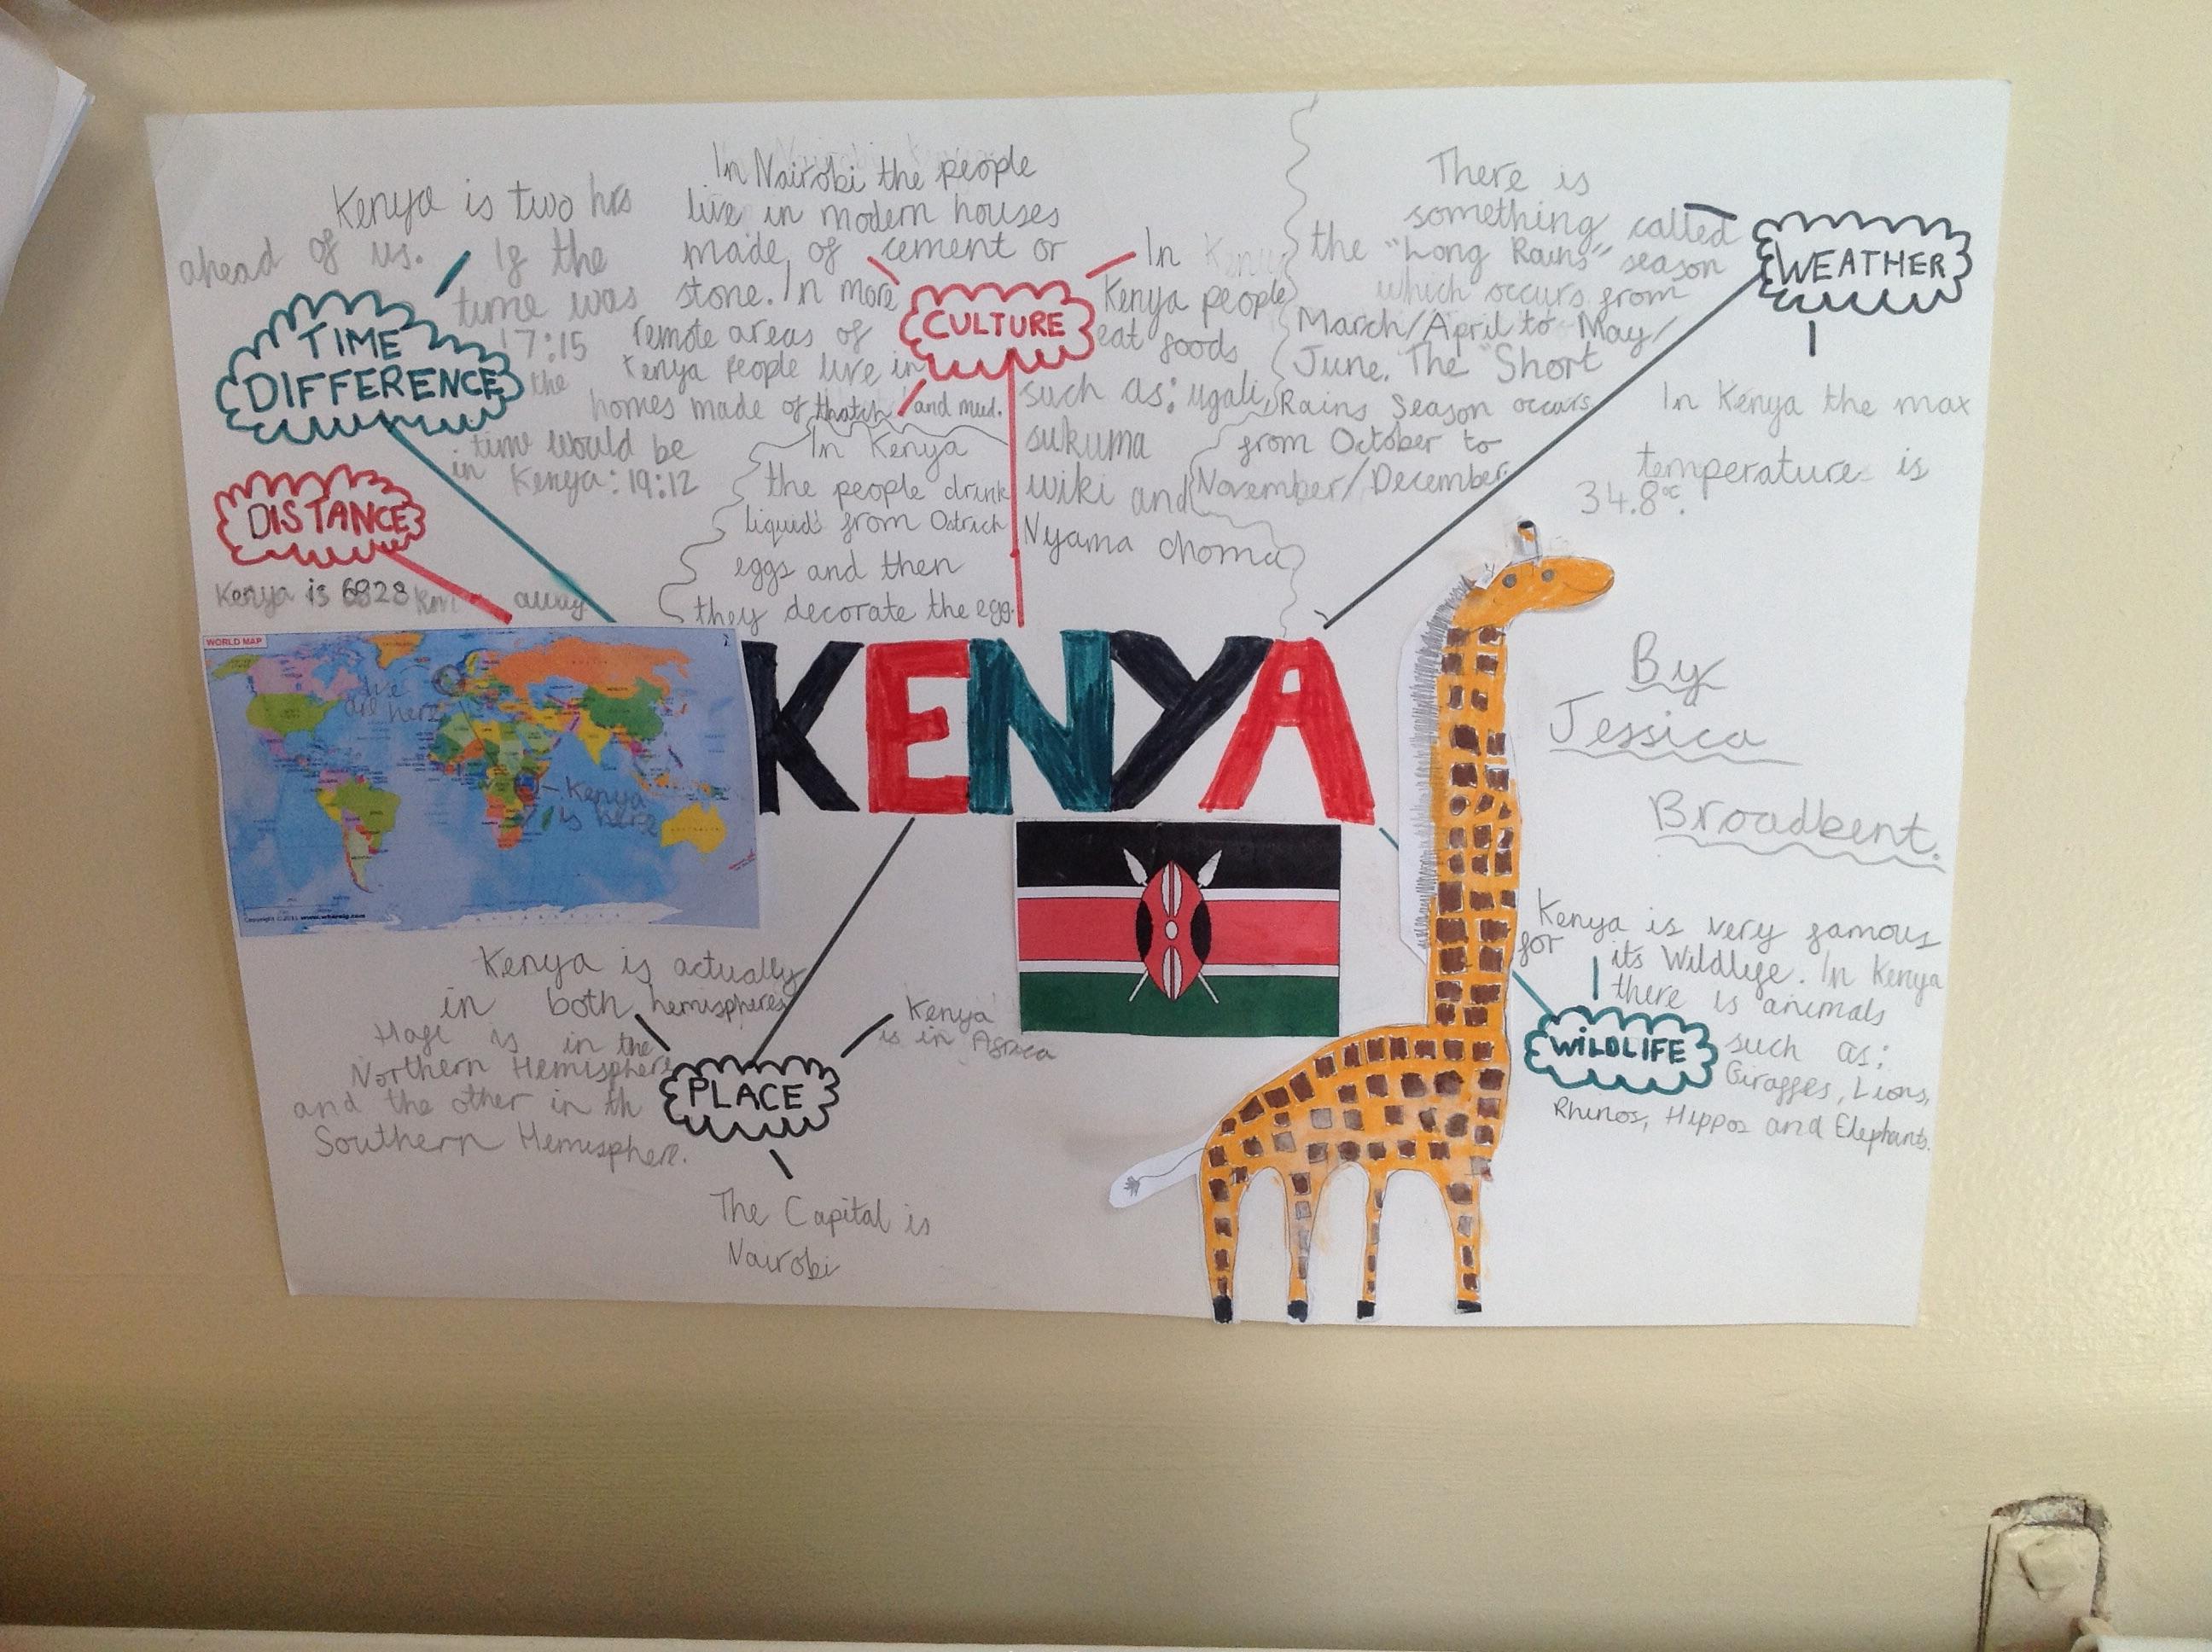 Kenya is two hrs
ahead of us. If the
time was
17:15
the
time would be
in Kenya: 19:12
TIME
DIFFERENCE
DISTANCE
Kenya is 6828 km away
In Nairobi the people
live in modern houses
made of cement or
stone. In more
remote areas of
Kenya people live in
homes made of thatch and mud.
CULTURE
In Kenya
the people drink
liquids from Ostrich
eggs and then
they decorate the egg.
In
Kenya people
eat foods
such as: ugali,
sukuma
wiki and
Nyama choma
There is
something called
the "Long Rains" season
which occurs from
March/April to May/
June. The "Short
Rains Season occurs
from October to
November/December
WEATHER
In Kenya the max
temperature is
34.8°C.
WORLD MAP
We
are here
Kenya
is here
AUSTRALIA
KENYA
By
Jessica
Broadbent.
Kenya is actually
in both hemispheres
Half is in the
Northern Hemisphere
and the other in th
Southern Hemisphere.
PLACE
Kenya
is in Africa
The Capital is
Nairobi
Kenya is very famous
for its Wildlife. In Kenya
there is animals
such as:
Giraffes, Lions,
Rhinos, Hippos and Elephants.
WiLDLIFE